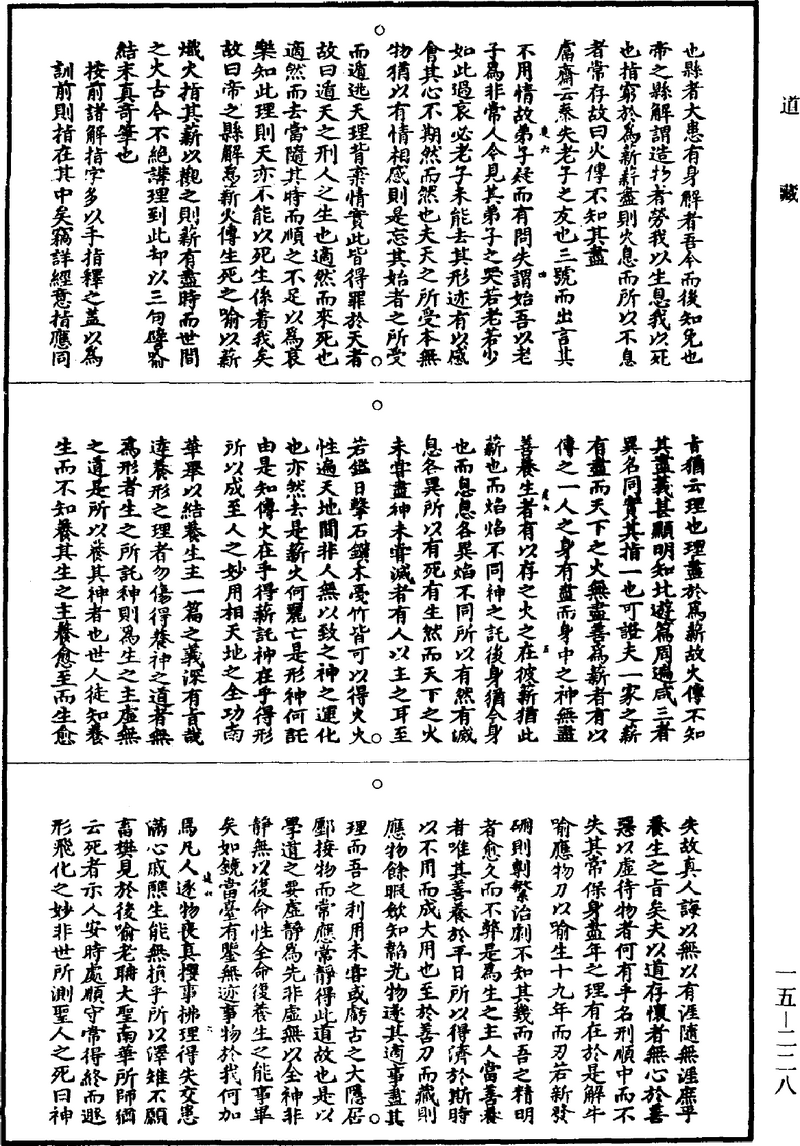 道藏
也縣者大患有身解者吾今而後知免也
帝之縣解謂造物者勞我以生息我以死
也指窮於為薪薪盡則火息而所以不息
者常存故曰火傳不知其盡
鬳齋云秦失老子之友也三號而出言其
不用情故弟子疑而有問失謂始吾以老
子為非常人今見其弟子之哭若老若少
如此過哀必老子未能去其形迹有以感
會其心不期然而然也夫天之所受本無
物猶以有情相感則是忘其始者之所受
而遁逃天理背棄情實此皆得罪於天者
故曰遁天之刑人之生也適然而來死也
適然而去當隨其時而順之不足以為哀
樂知此理則天亦不能以死生係著我矣
故曰帝之縣解為薪火傳生死之喻以薪
熾火指其薪以觀之則薪有盡時而世間
之火古今不絕講理到此却以三句譬喻
結末真奇筆也
按前諸解指字多以手指釋之蓋以為
訓前則指在其中矣竊詳經意指應同
旨猶云理也理盡於為薪故火傳不知
其盡義甚顯明知北遊篇周遍咸三者
異名同實其指一也可證夫一家之薪
有盡而天下之火無盡善為薪者有以
傳之一人之身有盡而身中之神無盡
善養生者有以存之火之在彼薪猶此
薪也而焰焰不同神之託後身猶今身
也而息息各異焰不同所以有然有滅
息各異所以有死有生然而天下之火
未嘗盡神未嘗滅者有人以主之耳至
若鑑日擊石鑽木戛竹皆可以得火火
性遍天地間非人無以致之神之運化
也亦然去是薪火何麗亡是形神何託
由是知傳火在乎得薪託神在乎得形
所以成至人之妙用相天地之全功南
華畢以結養生主一篇之義深有旨哉
達養形之理者勿傷得養神之道者無
為形者生之所託神則為生之主虛無
之道是所以養其神者也世人徒知養
生而不知養其生之主養愈至而生愈
失故真人誨以無以有涯隨無涯庶乎
養生之旨矣夫以道存懷者無心於善
惡以虛待物者何有乎名刑順中而不
失其常保身盡年之理有在於是解牛
喻應物刀以喻生十九年而刃若新發
硎則剸繁治劇不知其幾而吾之精明
者愈久而不弊是為生之主人當善養
者唯其善養於平日所以得濟於斯時
以不用而成大用也至於善刀而藏則
應物餘暇斂知韜光物逐其適事盡其
理而吾之利用未嘗或虧古之大隱居
鄽接物而常應常靜得此道故也是以
學道之要虛靜為先非虛無以全神非
靜無以復命性全命復養生之能事畢
矣如鏡當臺有鑒無迹事物於我何加
焉凡人逐物喪真撄事拂理得失交患
滿心戚醮生能無損乎所以澤雉不願
畜樊見於後喻老聃大聖南華所師猶
云死者示人安時處順守常得終而遯
形飛化之妙非世所測聖人之死曰神
一五—二二八